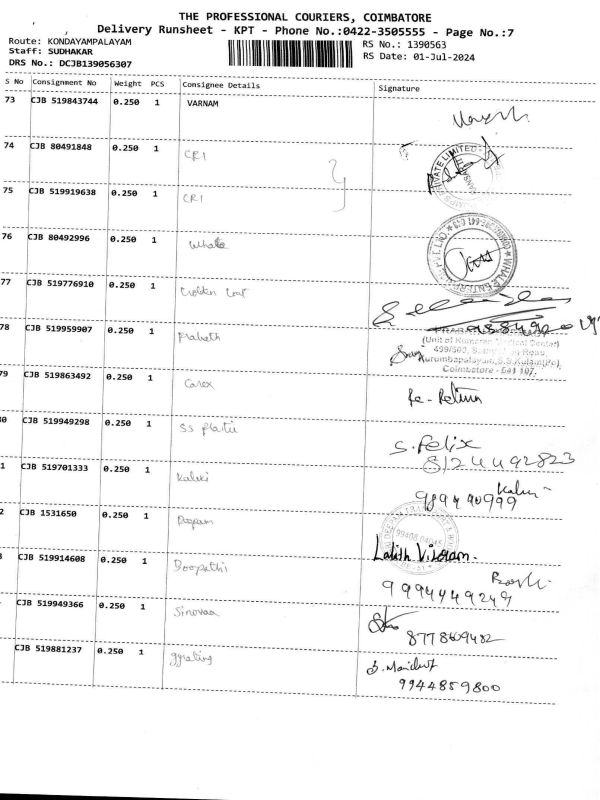 THE PROFESSIONAL COURIERS, COIMBATORE
Delivery Runsheet - KPT - Phone No.:0422-3505555 - Page No.:7
Route: KONDAYAMPALAYAM
Staff: SUDHAKAR
DRS No.: DCJB139056307
RS No.: 1390563
RS Date: 01-Jul-2024
S No Consignment No Weight PCS Consignee Details Signature
73 CJB 519843744 0.250 1 VARNAM
74 CJB 80491848 0.250 1 CRI
PRIVATE LIMITED
75 CJB 519919638 0.250 1 CRI
76 CJB 80492996 0.250 1 Whale
WHALE ENTERPRISES PVT. LTD.
77 CJB 519776910 0.250 1 Golden
78 CJB 519959907 0.250 1 Prabath
(Unit of Kumaran Medical Center)
Kurumbapalayam, S.S.Kulam(Po),
Coimbatore - 641 107.
79 CJB 519863492 0.250 1 Carex
Re-Return
80 CJB 519949298 0.250 1 SS
S. Felix
8124492823
1 CJB 519701333 0.250 1 Kalki
9894490999
2 CJB 1531650 0.250 1
Lalith Vikram.
CJB 519914608 0.250 1 Boopathi
9994449249
CJB 519949366 0.250 1 Sinovaa
8778609482
CJB 519881237 0.250 1
9944859800